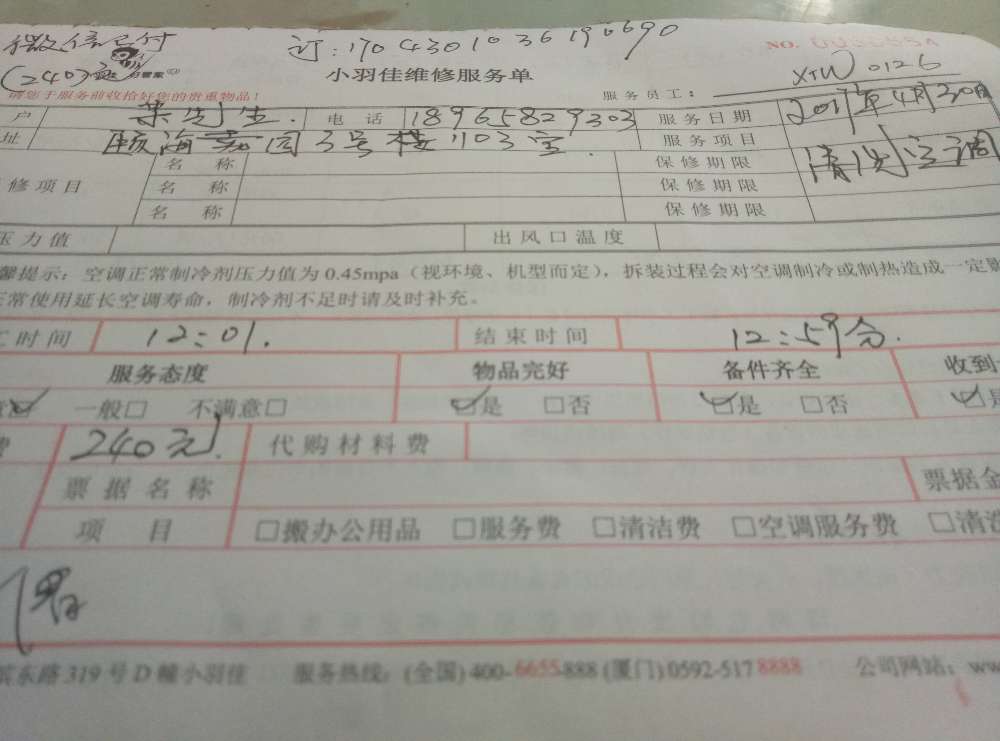 微信已付 订:1704301036190690 NO.
(240元) 管家 小羽佳维修服务单 服务员工: XTW0126
请您于服务前收拾好您的贵重物品!
户 先生. 电 话 18965829303 服务日期 2017年4月30日
址 海 园3号楼1103室. 服务项目 清洗空调
修项目 名 称 保修期限
名 称 保修期限
名 称 保修期限
压力值 出风口温度
馨提示:空调正常制冷剂压力值为0.45mpa(视环境、机型而定),拆装过程会对空调制冷或制热造成一定影
正常使用延长空调寿命,制冷剂不足时请及时补充。
工时间 12:01. 结束时间 12:59分.
服务态度 物品完好 备件齐全 收到
意☑ 一般□ 不满意□ ☑是 □否 ☑是 □否 ☑是
费 240元. 代购材料费
票据名称 票据金
项 目 □搬办公用品 □服务费 □清洁费 □空调服务费 □清洁
滨东路319号D幢小羽佳 服务热线:(全国)400-6655-888(厦门)0592-5178888 公司网站:ww